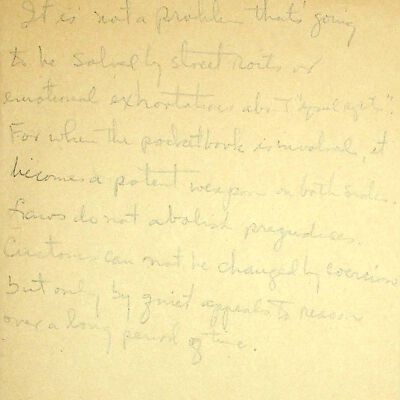 It is not a problem that's going
to be solved by street riots or
emotional exhortations about "equal rights".
For when the pocketbook is involved, it
becomes a potent weapon on both sides.
Laws do not abolish prejudices.
Customs can not be changed by coercion
but only by quiet appeals to reason
over a long period of time.